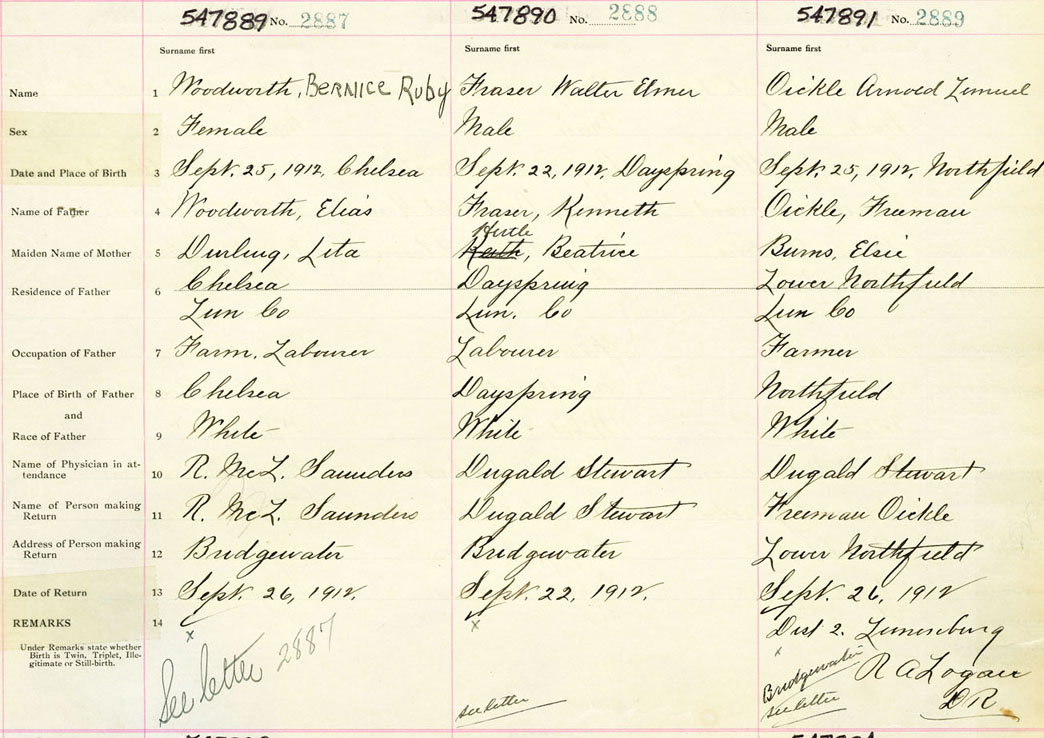 547889 No. 2887 547890 No. 2888 547891 No. 2889
Surname first Surname first Surname first
Name 1 Woodworth, Bernice Ruby Fraser Walter Elmer Oickle Arnold Lemuel
Sex 2 Female Male Male
Date and Place of Birth 3 Sept. 25, 1912, Chelsea Sept. 22, 1912, Dayspring Sept. 25, 1912, Northfield
Name of Father 4 Woodworth, Elias Fraser, Kenneth Oickle, Freeman
Hirtle
Maiden Name of Mother 5 Durling, Lita Keith, Beatrice Burns, Elsie
Residence of Father 6 Chelsea Dayspring Lower Northfield
Lun Co Lun. Co Lun Co
Occupation of Father 7 Farm. Labourer Labourer Farmer
Place of Birth of Father 8 Chelsea Dayspring Northfield
and
Race of Father 9 White White White
Name of Physician in at-
tendance 10 R. McL. Saunders Dugald Stewart Dugald Stewart
Name of Person making
Return 11 R. McL. Saunders Dugald Stewart Freeman Oickle
Address of Person making
Return 12 Bridgewater Bridgewater Lower Northfield
Date of Return 13 Sept. 26, 1912. Sept. 22, 1912. Sept. 26, 1912
REMARKS 14 x x Dist 2. Lunenburg
Under Remarks state whether
Birth is Twin, Triplet, Ille-
gitimate or Still-birth.
See letter 2887
see letter
x
Bridgewater
see letter
R A Logan
D R